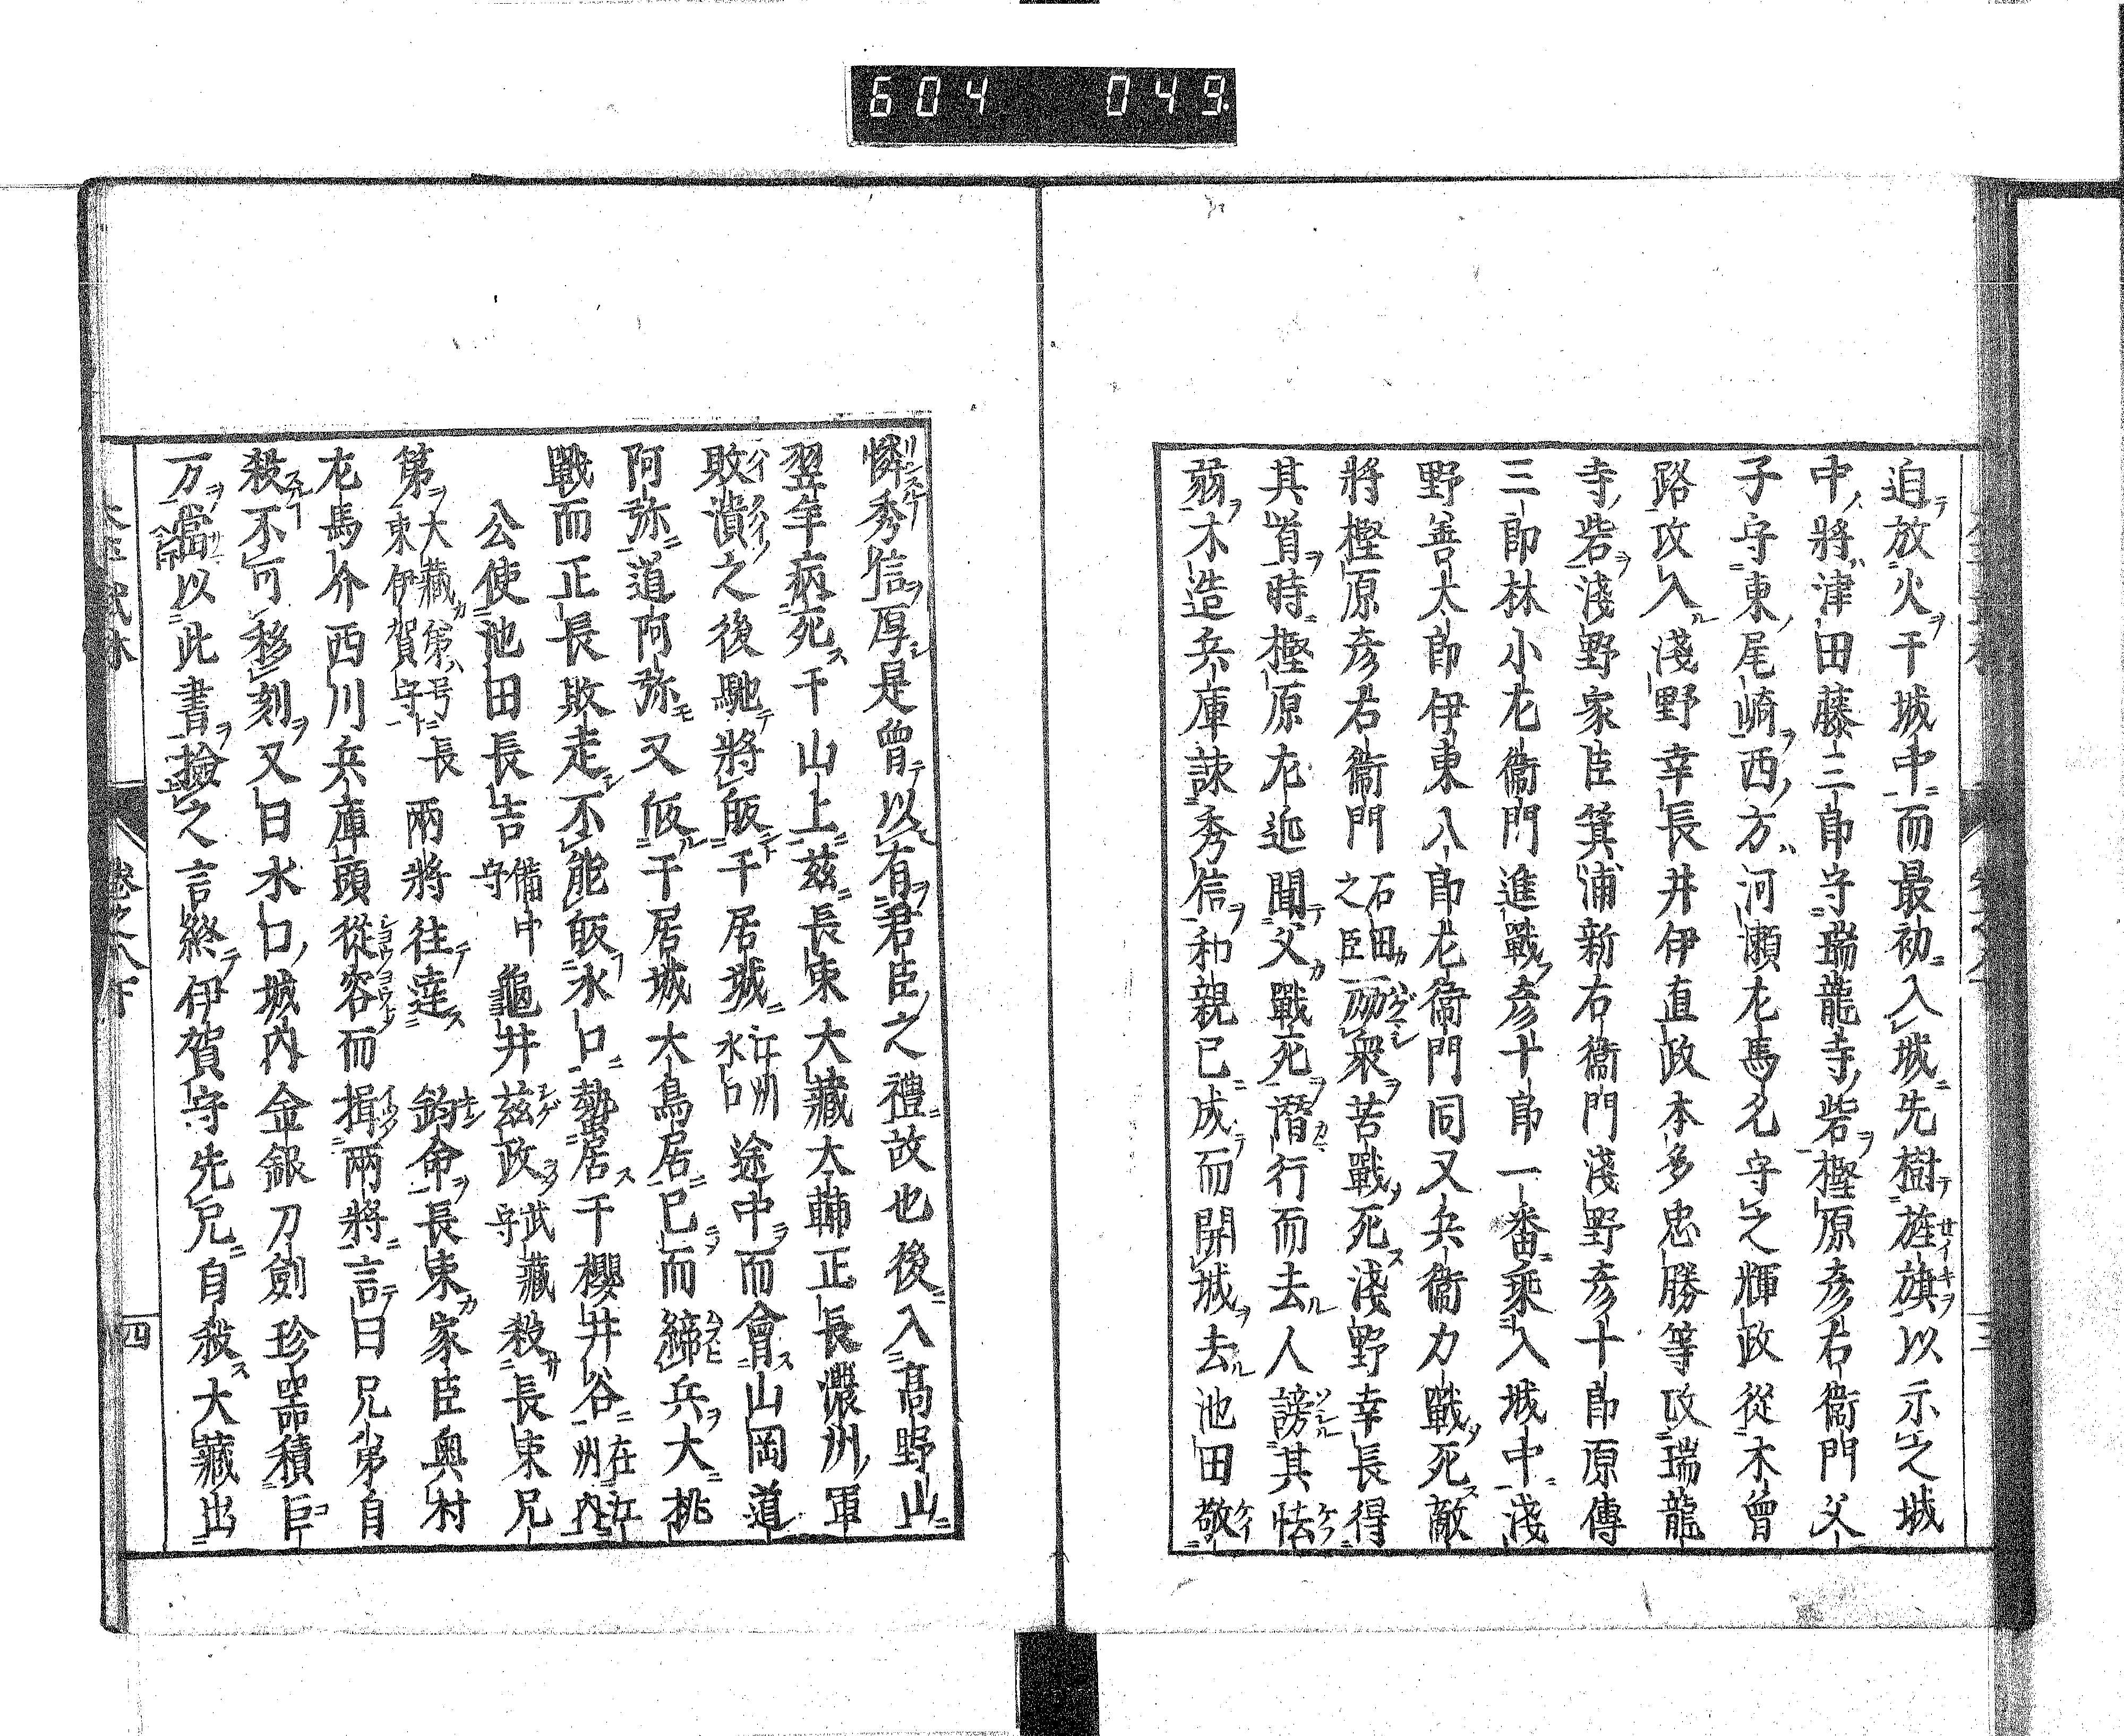 604 049.
迫放火于城中而最初入城先樹旌旗以示之城
中將津田藤三郎守瑞龍寺砦樫原彦右衞門父
子守東尾崎西方河瀨左馬允守之輝政從木曾
路攻入淺野幸長井伊直政本多忠勝等攻瑞龍
寺砦淺野家臣箕浦新右衞門淺野彦十郎原傳
三郎林小左衞門進戰彦十郎一番乘入城中淺
野善太郎伊東八郎左衞門同又兵衞力戰死敵
將樫原彦右衞門石田之臣勵衆苦戰死淺野幸長得
其首時樫原左近聞父戰死潛行而去人謗其怯
蒻木造兵庫諫秀信和親已成而開城去池田敬
憐秀信厚是曾以有君臣之禮故也後入高野山
翌年病死于山上茲長束大藏大輔正長濃洲軍
敗潰之後馳將皈于居城江洲水口途中而會山岡道
阿弥道阿弥又皈于居城大鳥居已而締兵大挑
戰而正長敗走不能皈水口蟄居于櫻井谷在江洲内
公使池田長吉備中守龜井茲政武藏守殺長束兄
第大藏第号東伊賀守長兩將往達鈞命長束家臣奥村
左馬介西川兵庫頭從容而揖兩將言曰兄弟自
殺不可移刻又曰水口城内金銀刀劍珍器積巨
万當以此書撿之言終伊賀守先兄自殺大藏出
卷之八下
四